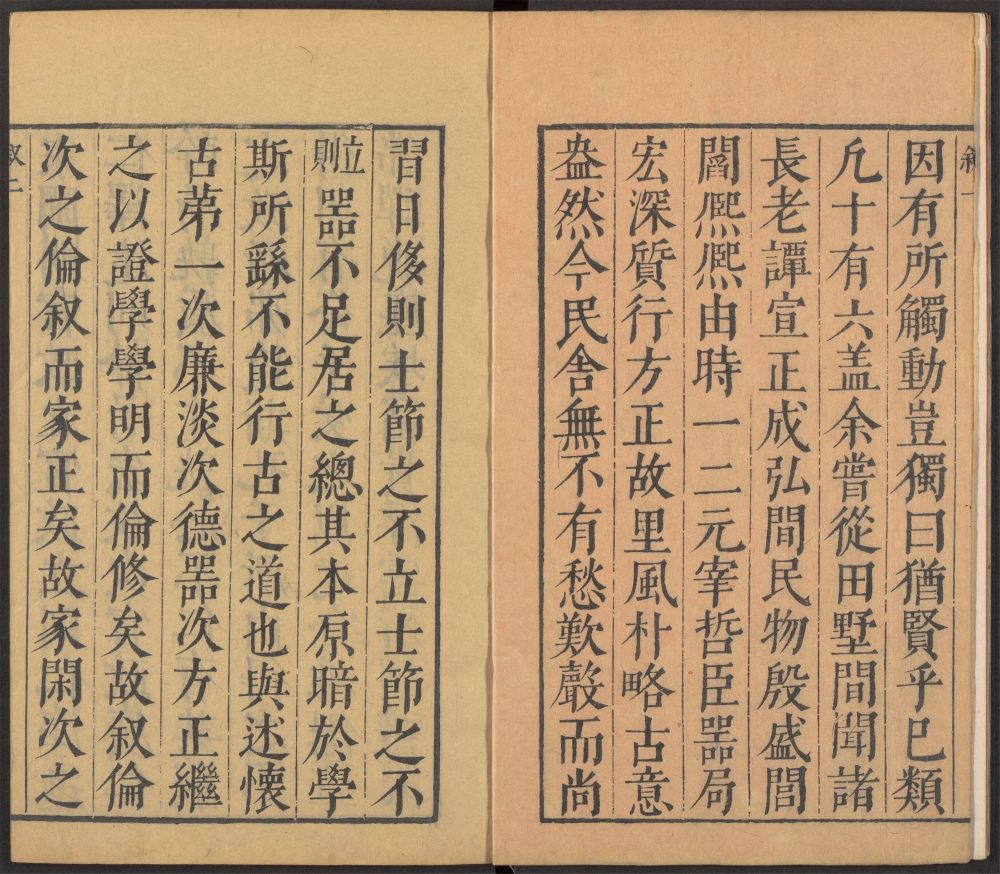 因有所觸動豈獨曰猶賢乎巳類
凢十有六盖余嘗從田墅間聞諸
長老譚宣正成弘間民物殷盛閭
閻熈熈由時一二元宰哲臣噐局
宏深質行方正故里風朴略古意
盎然今民舍無不有愁歎聲而尚
習日侈則士節之不立士節之不
立則噐不足居之總其本原暗於學
斯所繇不能行古之道也與述懷
古苐一次廉淡次德噐次方正繼
之以證學學明而倫修矣故叙倫
次之倫叙而家正矣故家閑次之
叙二